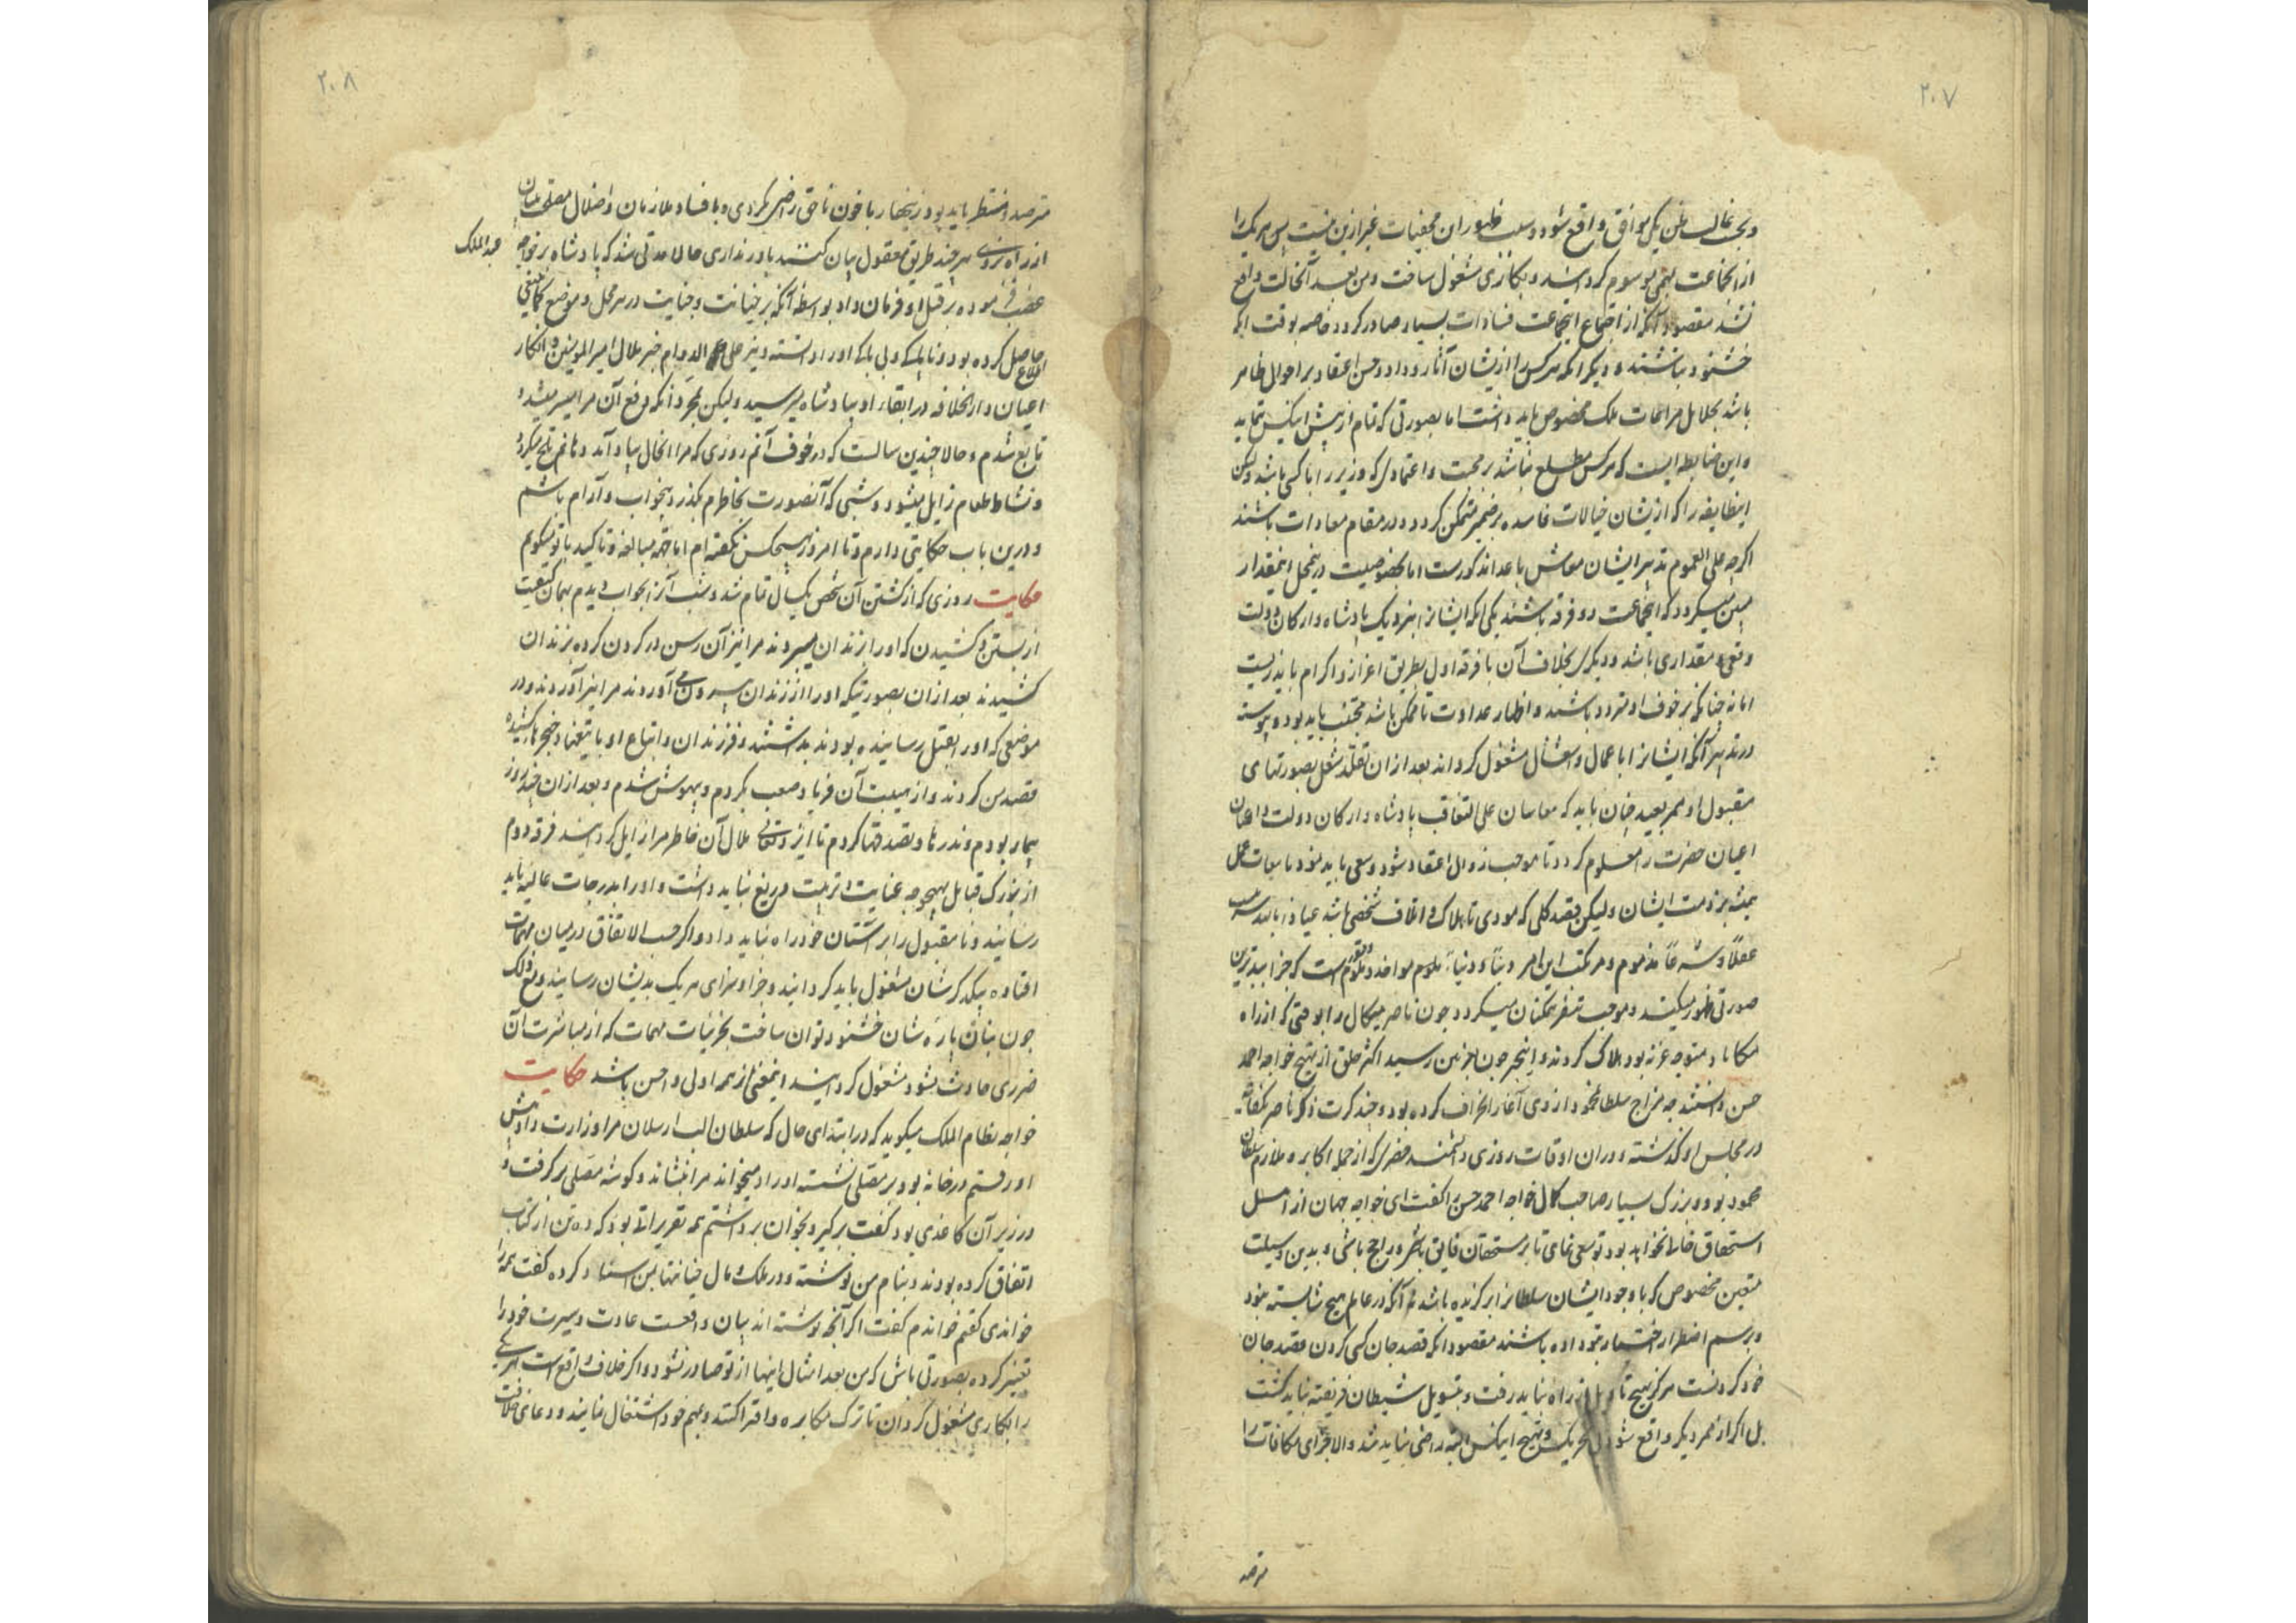 ۲۰۷
از انجماعت بمهمی موسوم گردانند و بکاری مشغول ساخت و من بعد آنحالت واقع
نشد مقصود آنکه از اجتماع اینجماعت فسادات بسیار صادر گردد خاصه بوقت آنکه
خشنود نباشند و دیگر آنکه هرکس را از یشان آثار و داد و حسن اعتقاد بر احوال ظاهر
باشد بجلایل مراعات ملک مخصوص باید داشت اما بصورتی که تمام از پیش اینکس نماید
و این ضابطه ایست که هرکس مطلع نباشد بر محبت و اعتمادی که وزیر را با کسی باشد و لیکن
اینطایفه را که ازیشان خیالات فاسده بر ضمیر متمکن گردد و در مقام معادات باشند
اگرچه علی العموم تدبیر ایشان معاش با اعدا مذکورست اما بخصوصیت درینمحل اینمقدار
مبین میگردد که اینجماعت دو فرقه باشند یکی آنکه ایشانرا نزدیک پادشاه و ارکان دولت
وقعی و مقداری باشد و دیگری بخلاف آن با فرقه اول بطریق اعزاز و اکرام باید زیست
اما نه چنانکه بر خوف او متردد باشند و اظهار عداوت تا ممکن باشد مجتنب باید بود و پیوسته
در تدبیر آنکه ایشانرا با عمال و اشغال مشغول گرداند بعد ازان تقلد شغل بصورتهای
مقبول او نمر بعید چنان باید که معاسان علی التعاقب پادشاه و ارکان دولت و اعیان
اعیان حضرت را معلوم گردد تا موجب زوال اعتقاد شود و سعی باید نمود تا تبعات عمل
همیشه بر ذمت ایشان ولیکن قصد کلی که مودی تا هلاک و اتلاف شخصی باشد عیاذا بالله
عقلاً و شرعاً مذموم و مرتکب این امر دیناً و دنیاً ملوم مواخذ و ملوم است که جزا ببدترین
صورتی ظهور میکند و موجب تنفر ممکنان میگردد چون ناصر میکال را بوقتی که از راه
مکاباد متوجه غزنه بود هلاک کردند و اینخبر چون بغزنین رسید اکثر خلق از تهیج خواجه احمد
حسن دانستند چه مزاج سلطان محمود از وی آغاز انحراف کرده بود و چند کرت ذکر ناصر بکفایت
در مجلس او گذشته و در ان اوقات روزی دانشمند خضری که از جمله اکابره ملازم سلطان
محمود بود و بزرگ بسیار صاحب کمال خواجه احمد حسن را گفت ای خواجه جهان از اهل
استحقاق خالی نخواهد بود تو سعی نمای تا بر مستحقان فایق باشی و راجح باشی و بدین وسیلت
متعین مخصوص که با وجود ایشان سلطان ترا برگزیده باشد نه آنکه در عالم هیچ شایسته نبود
و برسم اضطرار اختیار بتو داده باشند مقصود آنکه قصد جان کسی کردن قصد جان
خود کردنست هرگز بهیچ تاویل از راه نباید رفت و بتسویل شیطان فریفته نباید گشت
بل اگر از نمر دیگر واقع شود بی تحریک و تهیج اینکس البته راضی نباید شد والا جزای مکافات را
مترصد
۲۰۸
مترصد و منتظر باید بود زینهار با خون ناحق راضی نگردی و با فساد ملازمان و اضلال مصلحت بینان
از راه نروی هرچند طریق معقول بیان کنند باور نداری حالا مدتی شد که پادشاه بر خواجه
عبدالملک
غضب فرموده بر قتل او فرمان داد بواسطه آنکه بر خیانت و جنایت در هر محل و موضع کماینبغی
اطلاع حاصل کرده بود و ناپاکی و بی باکی او را دانسته و نیز علی الدوام خبر ملال امیرالمومنین و انکار
اعیان دار الخلافه در ابقاء او بپادشاه میرسید ولیکن بمجرد آنکه دفع آن مرا میسر میشد و
تابع شدم و حالا چندین سالست که در خوف آنم روزی که مرا انحال بیاد آید دهانم تلخ میگردد
و نشاط طعام زایل میشود و شبی که آنصورت بخاطرم بگذرد بیخواب و آرام باشم
و درین باب حکایتی دارم و تا امروز بهیچکس نگفته ام اما بجهة مبالغه و تاکید با تو میگویم
حکایت روزی که از کشتن آن شخص یکسال تمام شد و شب آنرا بخواب دیدم بهمان کیفیت
از بستن و کشیدن که او را بزندان میبردند مرا نیز آن رسن در گردن کرده بزندان
کشیدند بعد ازان بصورتیکه او را از زندان بیرون می آوردند مرا نیز آوردند و در
موضعی که او را بقتل رسانیده بودند بداشتند و فرزندان و اتباع او با تیغها و خنجرها کشیده
قصد من کردند و از هیبت آن فریاد صعب بکردم و بیهوش شدم و بعد ازان چند روز
بیمار بودم و نذرها و تصدقها کردم تا ایزد تعالی ملال آن خاطر مرا زایل گردانید فرقه دوم
از بزرگ قبایل بهیچوجه عنایت و تربیت دریغ نباید داشت و او را بدرجات عالیه باید
رسانید و نا مقبول را بر آستان خود راه نباید داد و اگر حسب الاتفاق در میان مهمات
افتاده بیکدگرشان مشغول باید گردانید و جزا و سزای هریک بدیشان رسانید و مع ذلک
چون بنان پاره شان خشنود توان ساخت بجزئیات مهمات که از مباشرت آن
ضرری حادث نشود مشغول گردانید اینمعنی از همه اولی و احسن باشد حکایت
خواجه نظام الملک میگوید که در ابتدای حال که سلطان الب ارسلان مرا وزارت داد پیش
او رفتم در خانه بود بر مصلی نشسته اوراد میخواند مرا بنشاند و گوشه مصلی برگرفت و
در زیر آن کاغذی بود گفت برگیر و بخوان برداشتم همه تقریراتی بود که ده تن از کتاب
اتفاق کرده بودند و بنام من نوشته و در ملک و مال خیانتها بمن اسناد کرده گفت همه را
خواندی گفتم خواندم گفت اگر آنچه نوشته اند بیان واقعست عادت و سیرت خود را
تغییر کرده بصورتی باش که من بعد امثال اینها از تو صادر نشود و اگر خلاف واقع است هر یکی
را بکاری مشغول گردان تا ترک مکابره و افترا کنند و بمهم خود اشتغال نمایند و دعای خلافت